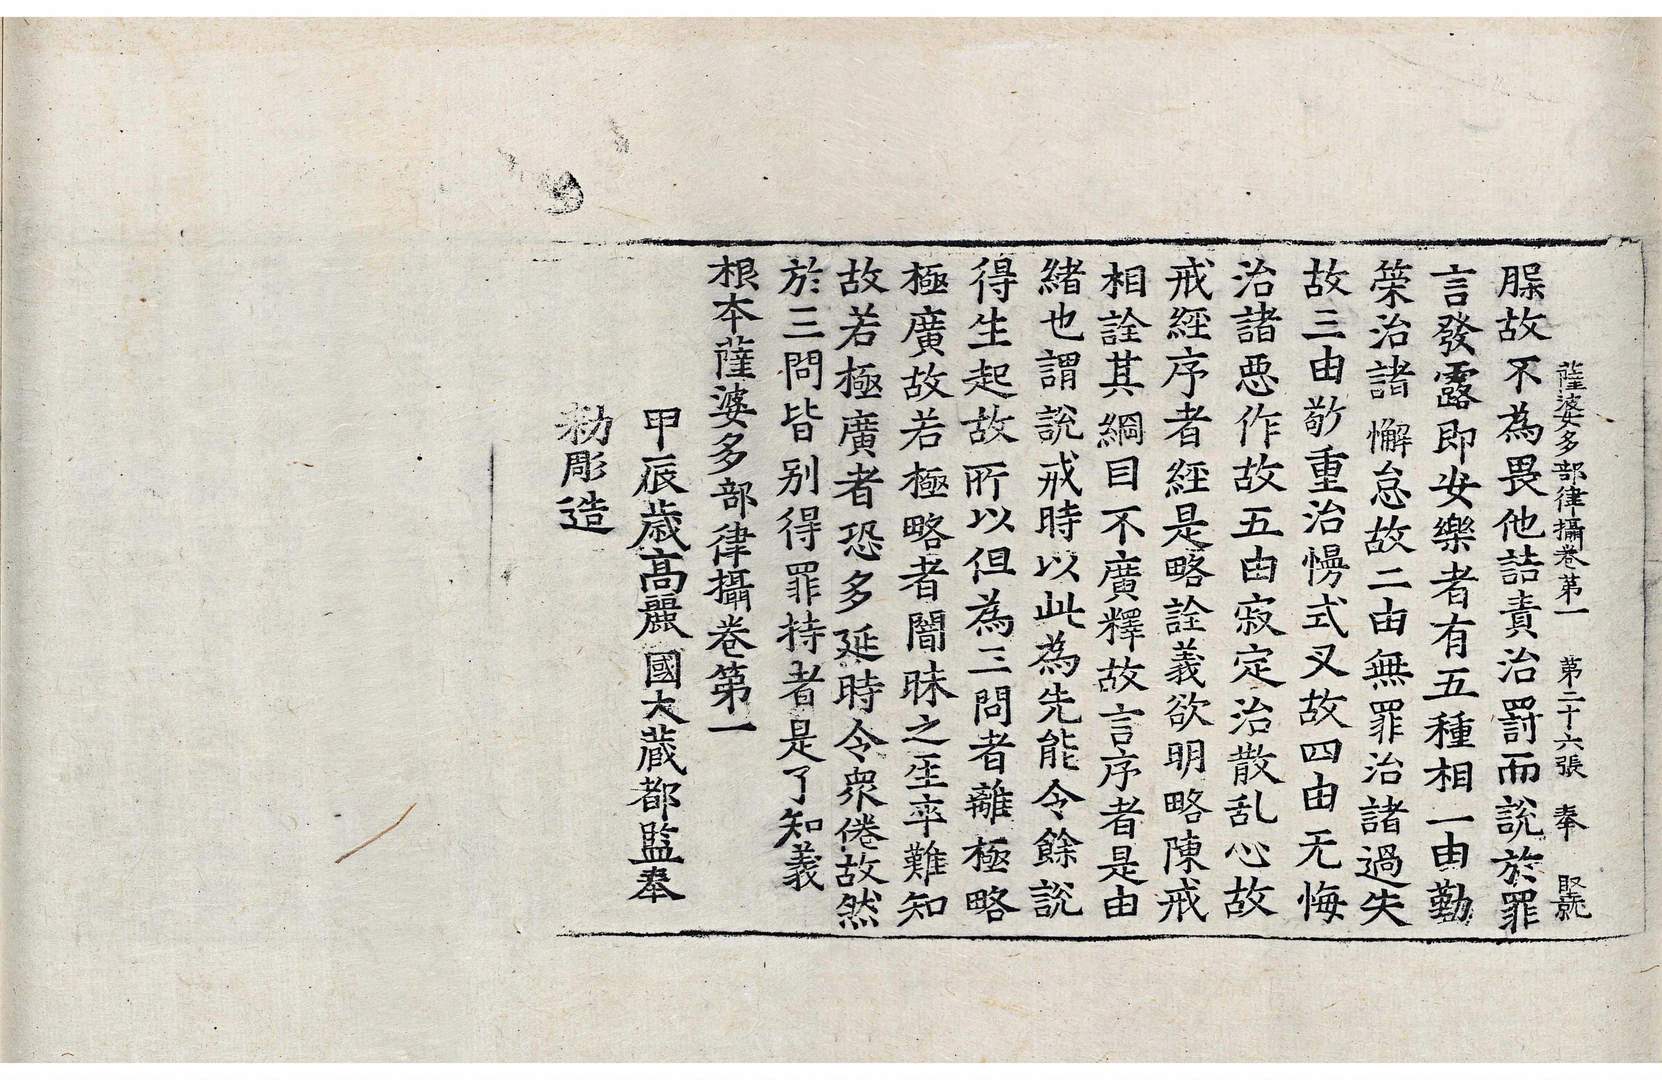 薩婆多部律攝卷第一 第二十六張 奉
腺故不為畏他詰責治罰而說於罪
言發露即安樂者有五種相一由勤
策治諸懈怠故二由無罪治諸過失
故三由敬重治慢式叉故四由无悔
治諸惡作故五由寂定治散乱心故
戒經序者經是略詮義欲明略陳戒
相詮其綱目不廣釋故言序者是由
緒也謂說戒時以此為先能令餘說
得生起故所以但為三問者離極略
極廣故若極略者闇昧之坒卒難知
故若極廣者恐多延時令衆倦故然
於三問皆別得罪持者是了知義
根本薩婆多部律攝卷第一
甲辰歲高麗國大藏都監奉
勑彫造